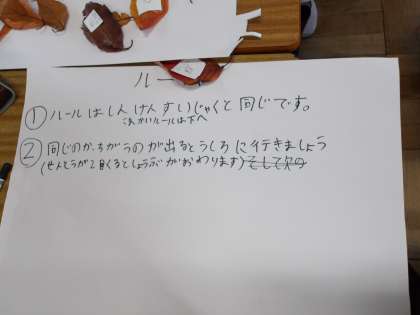 ルー
① ルールはしんけんすいじゃくと同じです。
こまかいルールは下へ
② 同じのか、ちがうのが出るとうしろに行きましょう
(せんとうが2回くるとしょうぶがおわります)そして次の